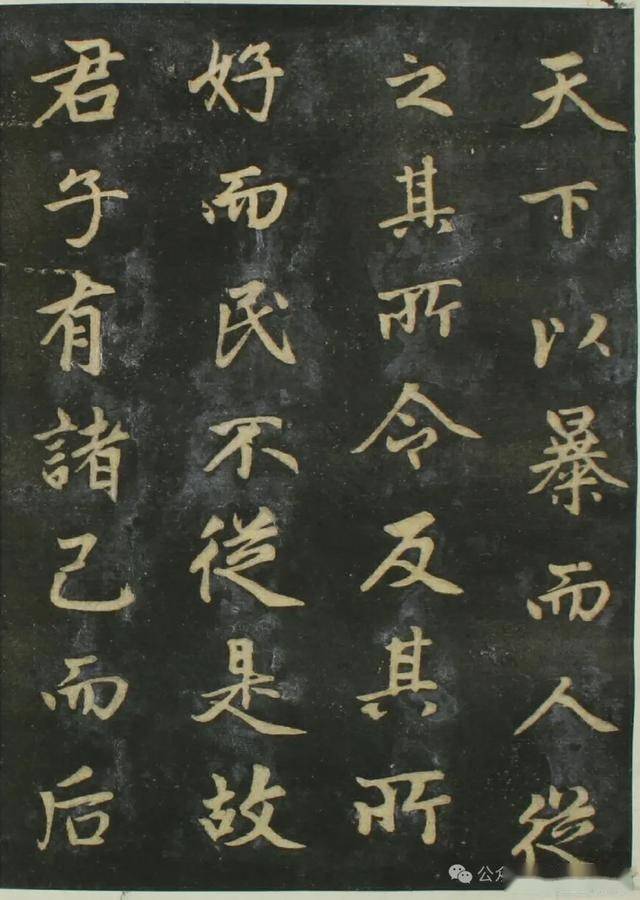 天下以暴而人從
之其所令反其所
好而民不從是故
君子有諸己而后
公众